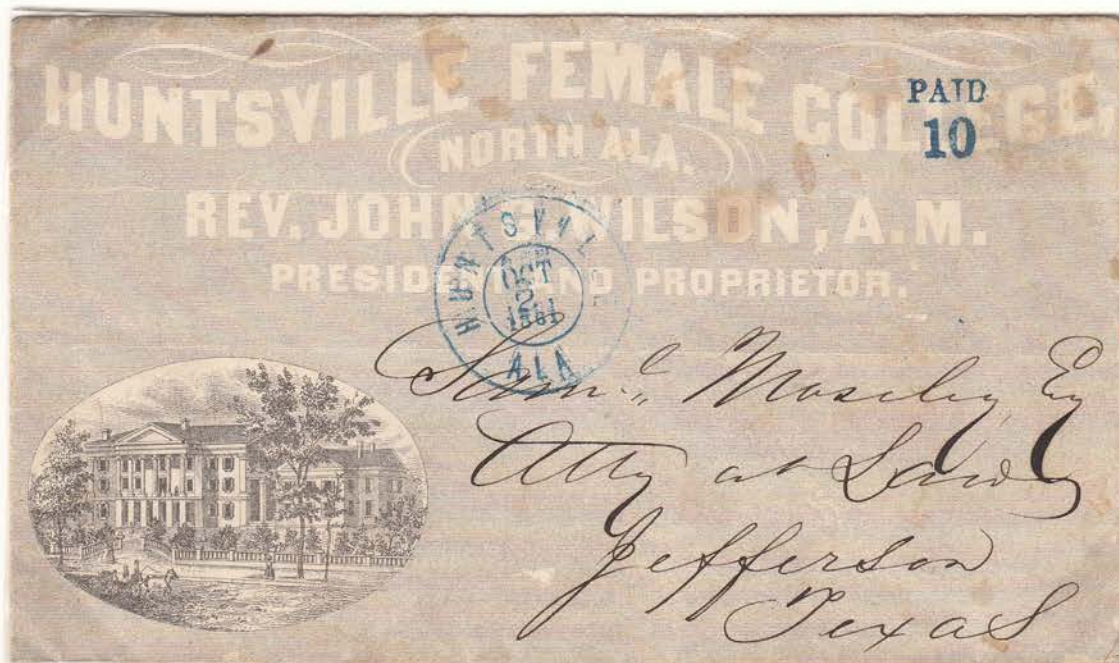 HUNTSVILLE FEMALE COLLEGE,
NORTH ALA.
REV. JOHN G. WILSON, A.M.
PRESIDENT AND PROPRIETOR.
PAID
10
HUNTSVILLE
OCT
2
1861
ALA
Saml. Moseley, Esq
Atty at Law
Jefferson
Texas